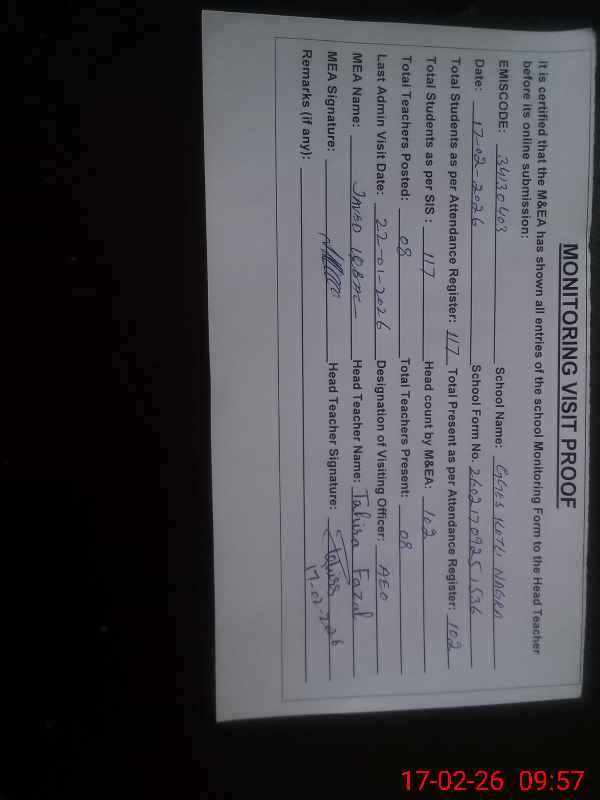 MONITORING VISIT PROOF
It is certified that the M&EA has shown all entries of the school Monitoring Form to the Head Teacher
before its online submission:
EMISCODE: 34130403 School Name: GGES KOTLI NAGRA
Date: 17-02-2026 School Form No. 26021709251536
Total Students as per Attendance Register: 117 Total Present as per Attendance Register: 102
Total Students as per SIS : 117 Head count by M&EA: 102
Total Teachers Posted: 08 Total Teachers Present: 08
Last Admin Visit Date: 22-01-2026 Designation of Visiting Officer: AEO
MEA Name: JAVED IQBAL Head Teacher Name: Tahira Fazal
MEA Signature: Head Teacher Signature: Tahira
17-02-2026
Remarks (if any):
17-02-26 09:57